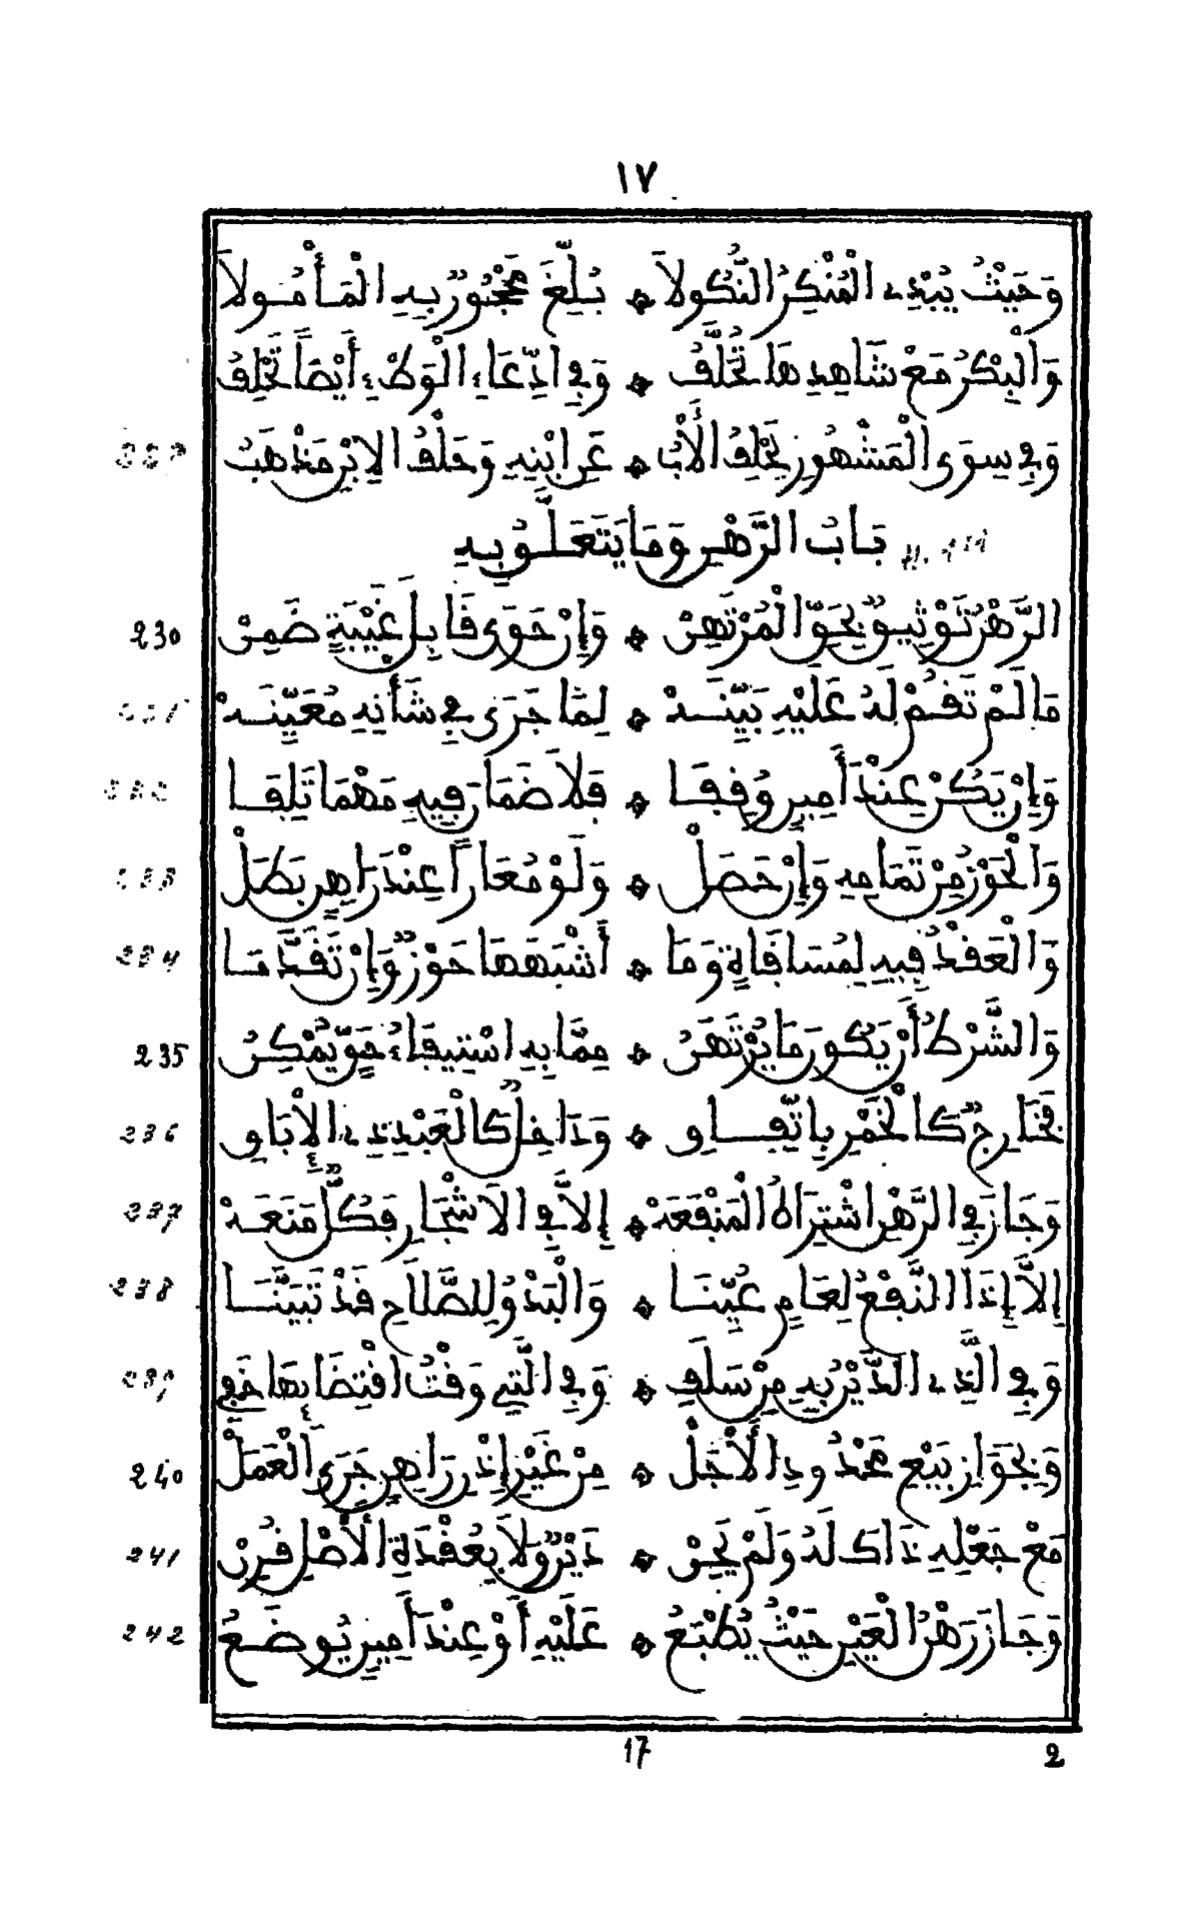 ١٧
وَحَيْثُ يُبْدِي الْمُنْكِرُ النُّكُولاَ ۞ بُلِّغَ مَحْجُورٌ بِهِ الْمَأْمُولاَ
وَالْبِكْرُ مَعْ شَاهِدِهَا تُحَلَّفُ ۞ وَفِي ادِّعَاءِ الْوَطْءِ أَيْضًا تَحْلِفُ
وَفِي سِوَى الْمَشْهُورِ يَحْلِفُ الْأَبُ ۞ عَنِ ابْنِهِ وَحَلْفُ الِابْنِ مَذْهَبُ
بَابُ الرَّهْنِ وَمَا يَتَعَلَّقُ بِهِ
230 الرَّهْنُ تَوْثِيقٌ بِحَقِّ الْمُرْتَهِنْ ۞ وَإِنْ حَوَى قَابِلَ غَيْبَةٍ ضَمِنْ
مَا لَمْ تَقُمْ لَهُ عَلَيْهِ بَيِّنَهْ ۞ لِمَا جَرَى فِي شَأْنِهِ مُعَيِّنَهْ
وَإِنْ يَكُنْ عِنْدَ أَمِينٍ وُقِفَا ۞ فَلاَ ضَمَانَ فِيهِ مَهْمَا تَلِفَا
وَالْحَوْزُ مِنْ تَمَامِهِ وَإِنْ حَصَلْ ۞ وَلَوْ مُعَارًا عِنْدَ رَاهِنٍ بَطَلْ
234 وَالْعَقْدُ فِيهِ لِمُسَاقَاةٍ وَمَا ۞ أَشْبَهَهَا حَوْزٌ وَإِنْ تَقَدَّمَا
235 وَالشَّرْطُ أَنْ يَكُونَ مَا يُرْتَهَنُ ۞ مِمَّا بِهِ اسْتِيفَاءُ حَقٍّ يُمْكِنُ
236 فَخَارِجٌ كَالْخَمْرِ بِاتِّفَاقِ ۞ وَدَاخِلٌ كَالْعَبْدِ ذِي الْإِبَاقِ
237 وَجَازَ فِي الرَّهْنِ اشْتِرَاطُ الْمَنْفَعَهْ ۞ إِلاَّ فِي الْأَشْجَارِ فَكُلٌّ مَنَعَهْ
238 إِلاَّ إِذَا النَّفْعُ لِعَامٍ عُيِّنَا ۞ وَالْبَدْوُ لِلصَّلاَحِ قَدْ تَبَيَّنَا
239 وَفِي الَّذِي الدَّيْنُ بِهِ مِنْ سَلَفِ ۞ وَفِي الَّتِي وَقْتُ اقْتِضَائِهَا خَفِي
240 وَبِجَوَازِ بَيْعِ مَحْدُودِ الْأَجَلْ ۞ مِنْ غَيْرِ إِذْنِ رَاهِنٍ جَرَى الْعَمَلْ
241 مَعْ جَعْلِهِ ذَاكَ لَهُ وَلَمْ يَحِنْ ۞ دَيْنٌ وَلاَ بِعُقْدَةِ الْأَصْلِ قُرِنْ
242 وَجَازَ رَهْنُ الْعَيْنِ حَيْثُ يُطْبَعُ ۞ عَلَيْهِ أَوْ عِنْدَ أَمِينٍ يُوضَعُ
17 2